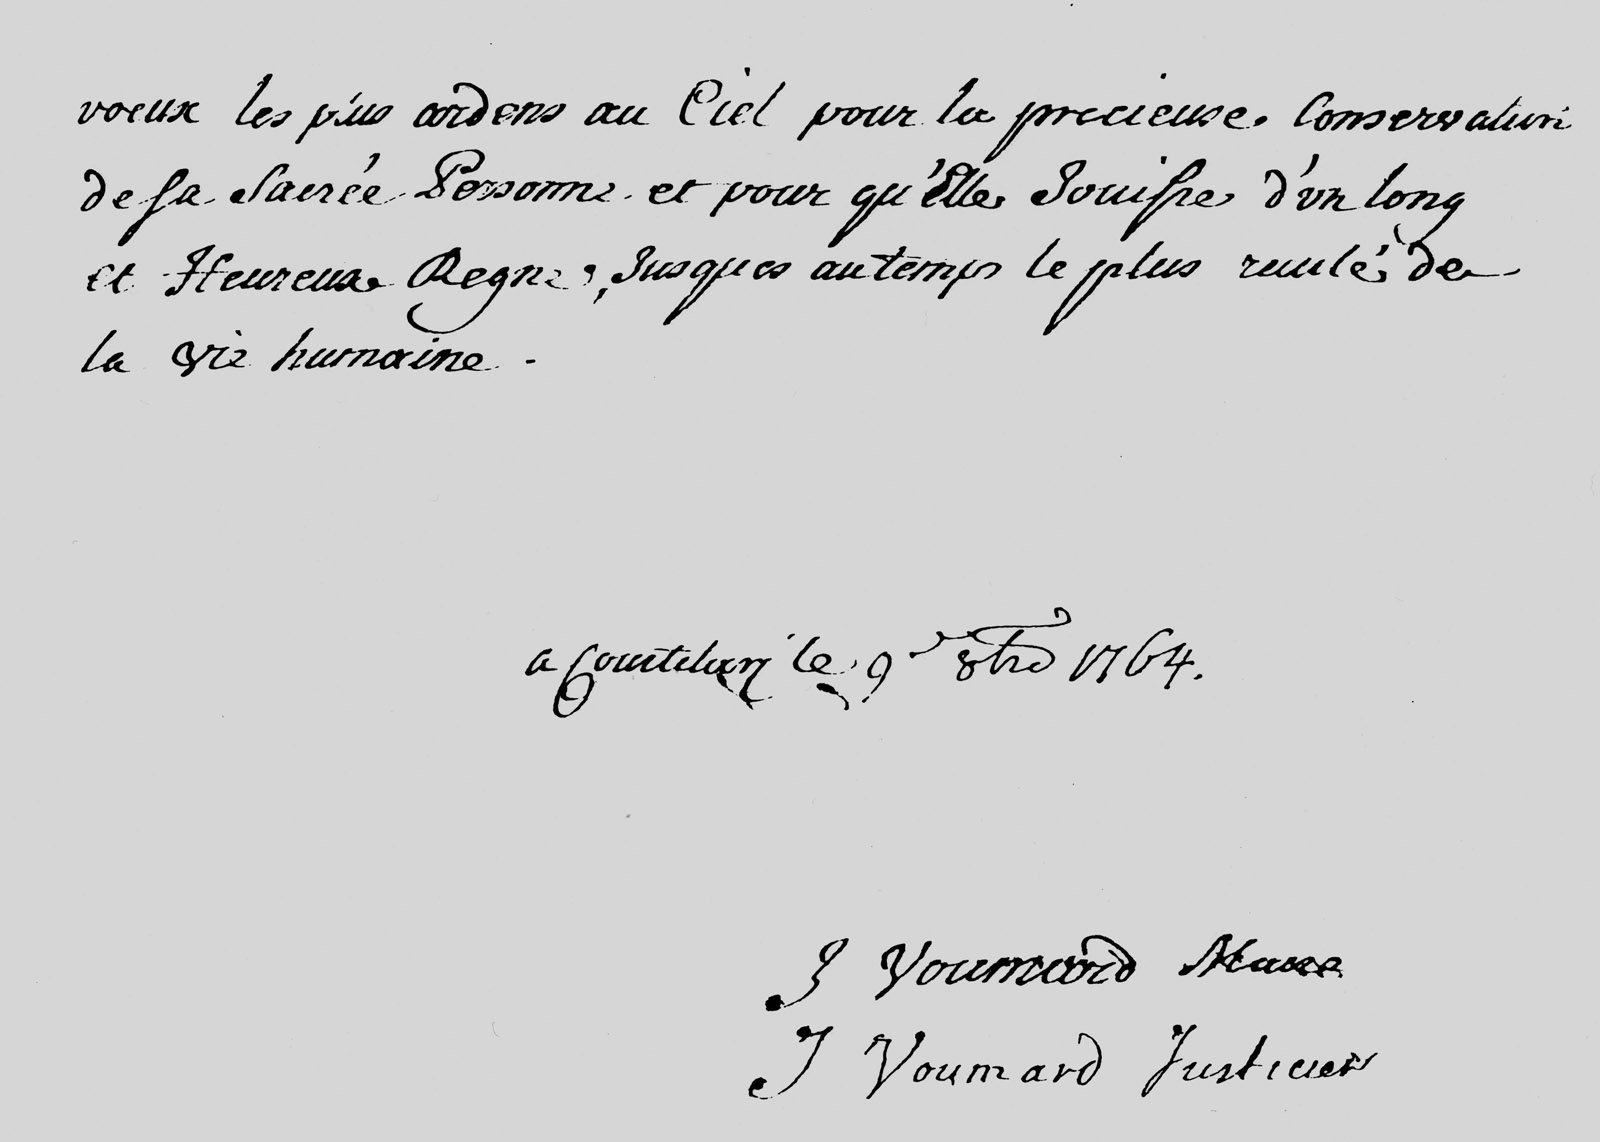 voeux les plus ardens au Ciel pour la precieuse Conservation
de Sa Sacrée Personne et pour qu'Elle Jouisse d'un long
et Heureux Regne, Jusques au temps le plus reculé de
la vie humaine.
a Courtelary le 9 8bre 1764.
J Voumard Maire
J Voumard Justicier